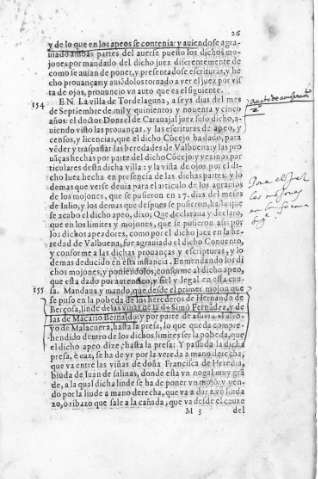 26
y de lo que en los apeos se contenia: y auiendose agra-
uado ambas partes del auerse puesto los dichos mo-
jones por mandado del dicho juez diferentemente de
como se auian de poner, y presentadose escrituras, y he
cho prouanças y mandose tornado a ver el juez por vis
ta de ojos, pronuncio vn auto que es el siguiente.
154 EN La villa de Tordelaguna, a seys dias del mes
de Septiembre de mil y quinientos y nouenta y cinco
años: el doctor Don de Carauajal juez solo dicho, a-
uiendo visto las prouanças, y las escrituras de apeo, y
censos, y licencias, que el dicho Cõcejo ha dado, para
veder y traspassar las heredades de Valbuena: y las pro
uanças hechas por parte del dicho Cõcejo y vezinos par
ticulares desta dicha villa: y la vista de ojos por el di-
cho juez hecha en presencia de las dichas partes; y lo
demas que verse deuia para el articulo de los agrauios
de los mojones, que se pusieron en 17. dias del mes
de Iulio, y los demas que despues se pusieron, hasta que
se acabo el dicho apeo, dixo, Que declaraua y declaro,
que en los limites y mojones, que se pusieron assi por
los dichos apeadores, como por el dicho juez en la he-
redad de Valbuena, fue agrauiado el dicho Conuento,
y conforme a las dichas prouanças y escrituras, y lo
demas deducido en esta instancia. Enmendando los di
chos mojones, y poniendolos, conforme al dicho apeo,
que esta dado por autentico, y fiel y legal en esta cau-
155 sa. Mandaua y mando, que desde el primer mojon que
se puso en la pobeda de los herederos de Hernando de
Berçosa, linde de las viñas de la de Simõ Fernãdez, y de
las de Macario Bernaldo, y por parte de abaxo, el arro-
yo de Malacuera, hasta la presa, lo que queda compre-
hendido dentro de los dichos limites sea la pobeda, que
el dicho apeo dize, hasta la presa: Y passada la dicha
presa, è caz, se ha de yr por la vereda a mano derecha,
que va entre las viñas de doña Francisca de Heredia,
biuda de Iuan de salinas, donde esta vn nogal muy gră
de, a la qual dicha linde se ha de poner vn mojõ, y yen-
do por la linde a mano derecha, que va a dar a vn linda
zo, o ribazo que sale a la cañada, que va desde el cauze
M 3 del